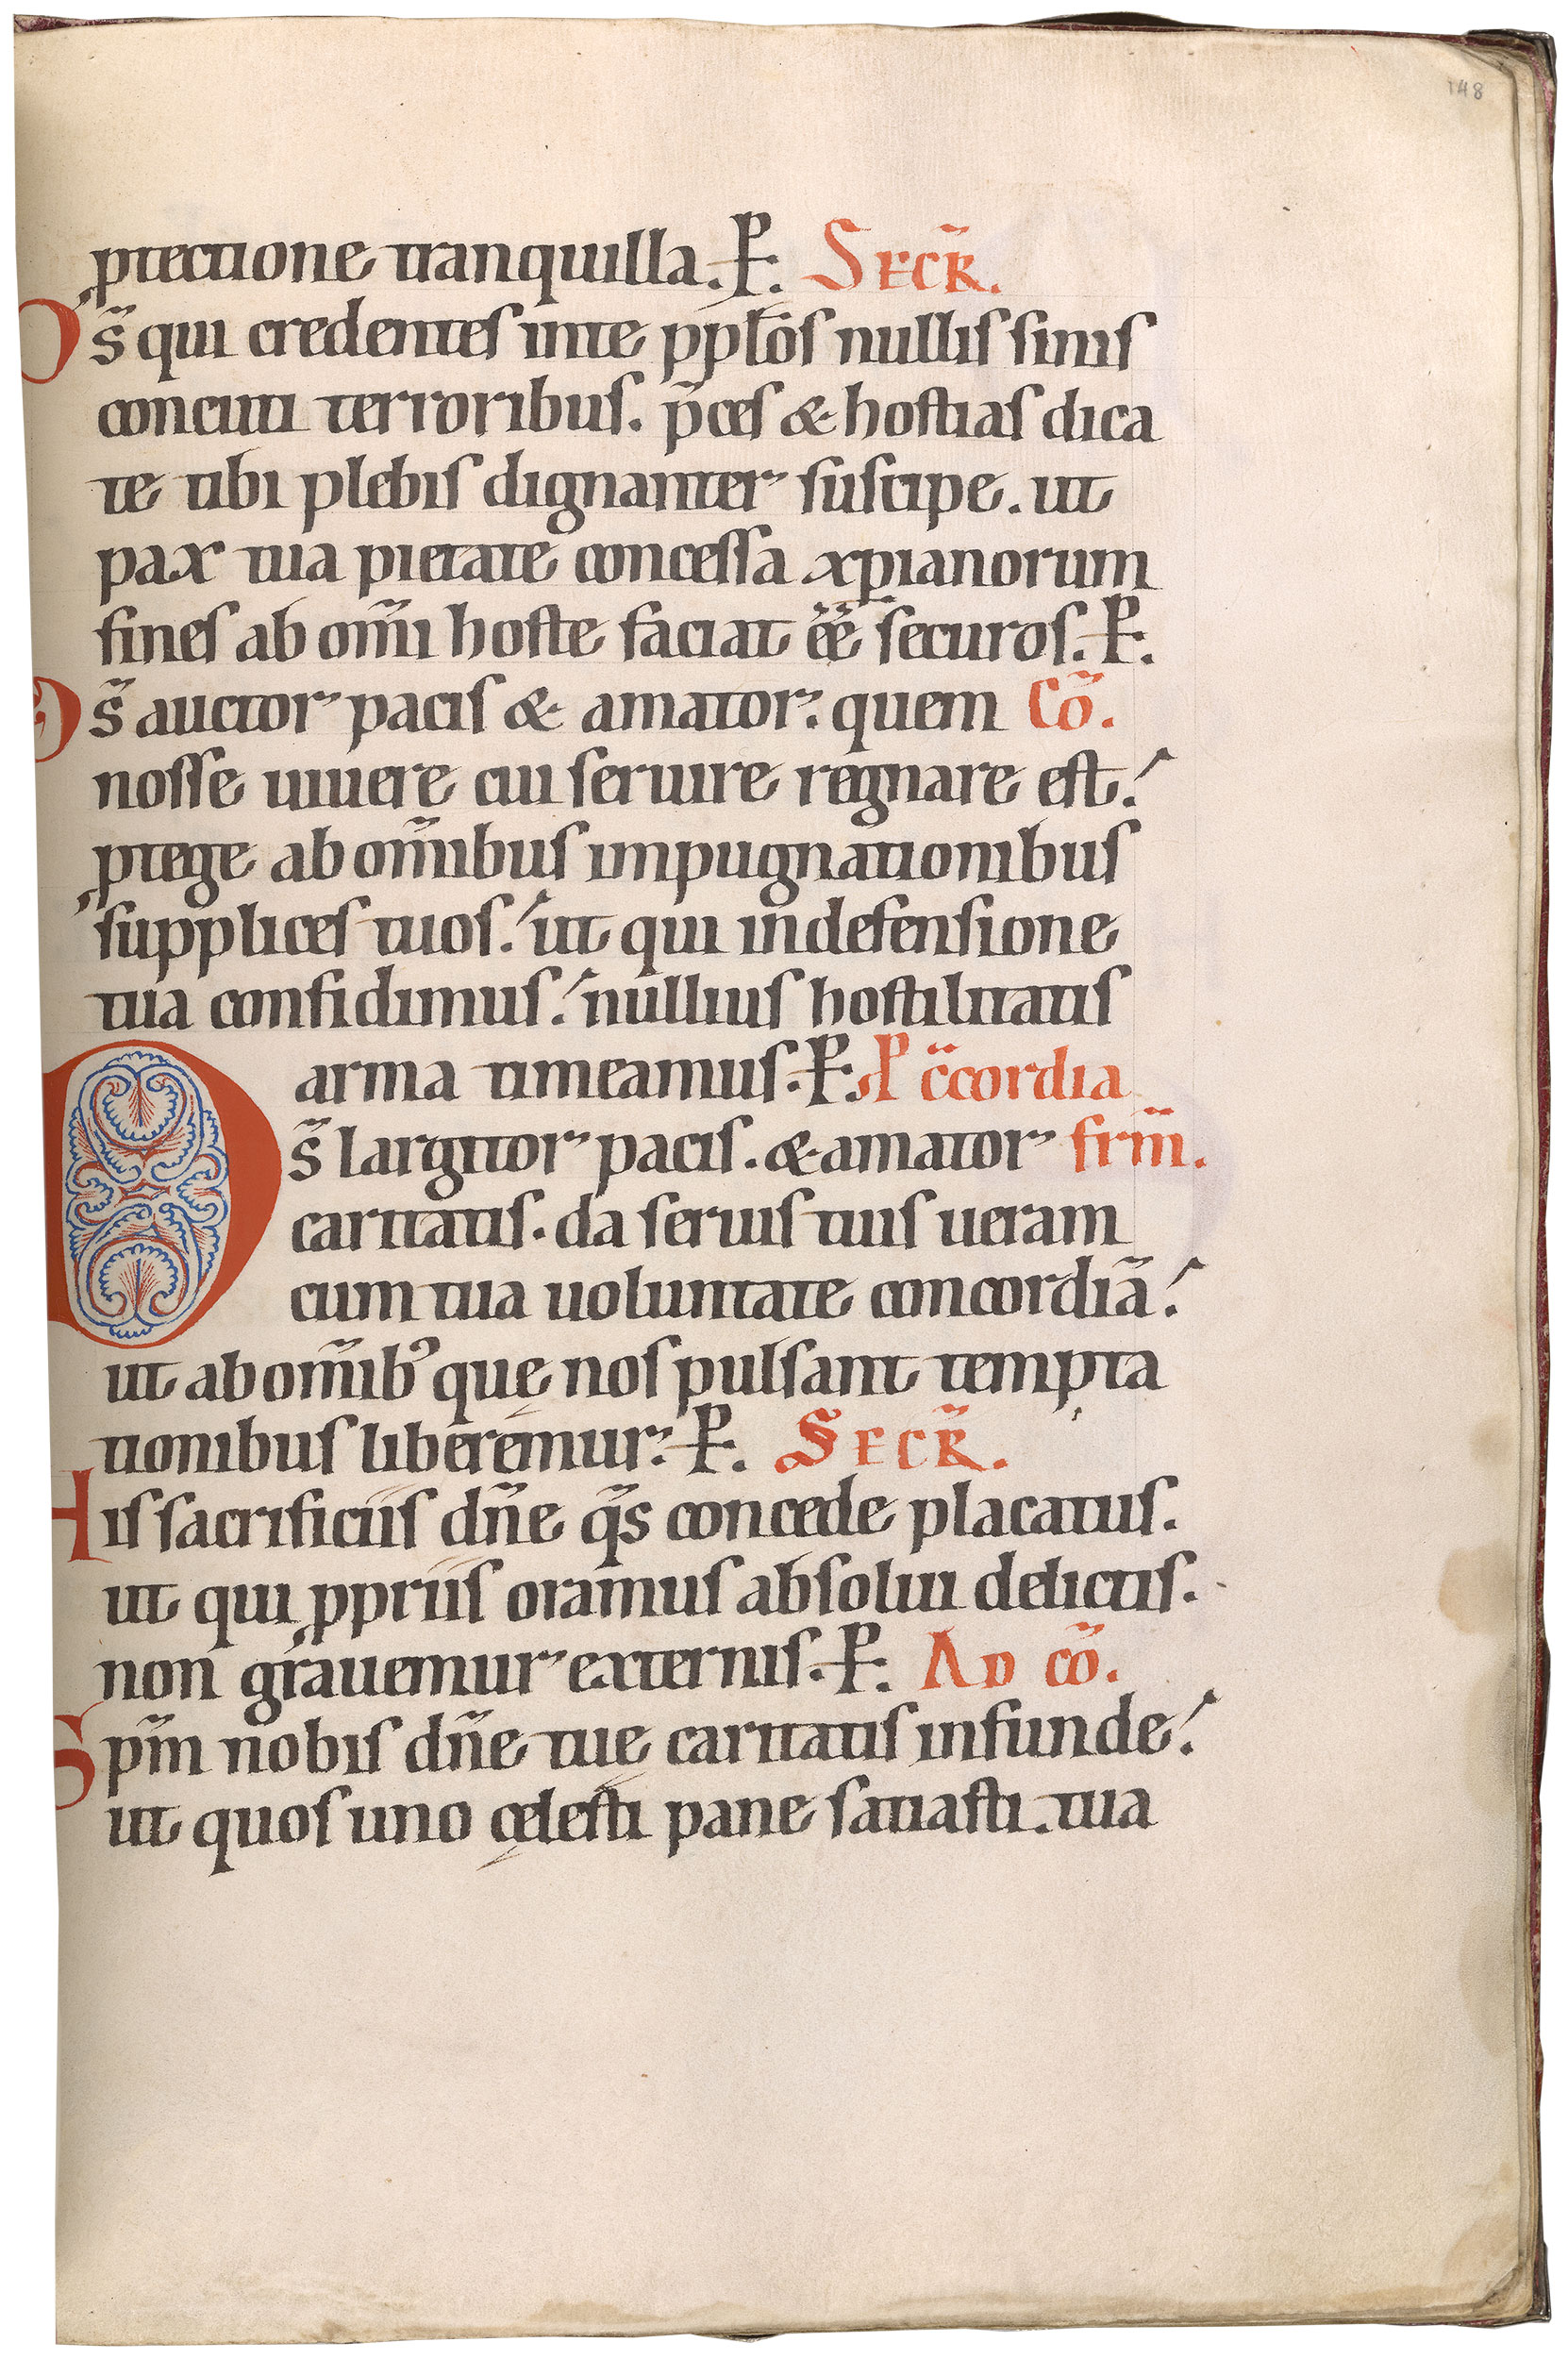 148
ꝓtectione tranquilla. P. Secr̃.
Ds̃ qui credentes inte ppl̃os nullis sinis
concuti terroribus. p̃ces & hostias dica
te tibi plebis dignanter suscipe. ut
pax tua pietate concessa xp̃ianorum
fines ab om̃i hoste faciat ẽẽ securos. P.
Ds̃ auctor pacis & amator. quem Cõ.
nosse uiuere cui seruire regnare est.
ꝓtege ab om̃ibus impugnationibus
supplices tuos. ut qui indefensione
tua confidimus. nullius hostilitatis
arma timeamus. P. P c̃cordia
Ds̃ largitor pacis. & amator frm̃.
caritatis. da seruis tuis ueram
cum tua uoluntate concordiã.
ut ab om̃ibꝰ quę nos pulsant tempta
tionibus liberemur. P. Secr̃.
His sacrificiis dñe q̃s concede placatus.
ut qui ꝓpriis oramus absolui delictis.
non grauemur externis. P. Ad cõ.
Spm̃ nobis dñe tuę caritatis infunde.
ut quos uno cęlesti pane satiasti. tua